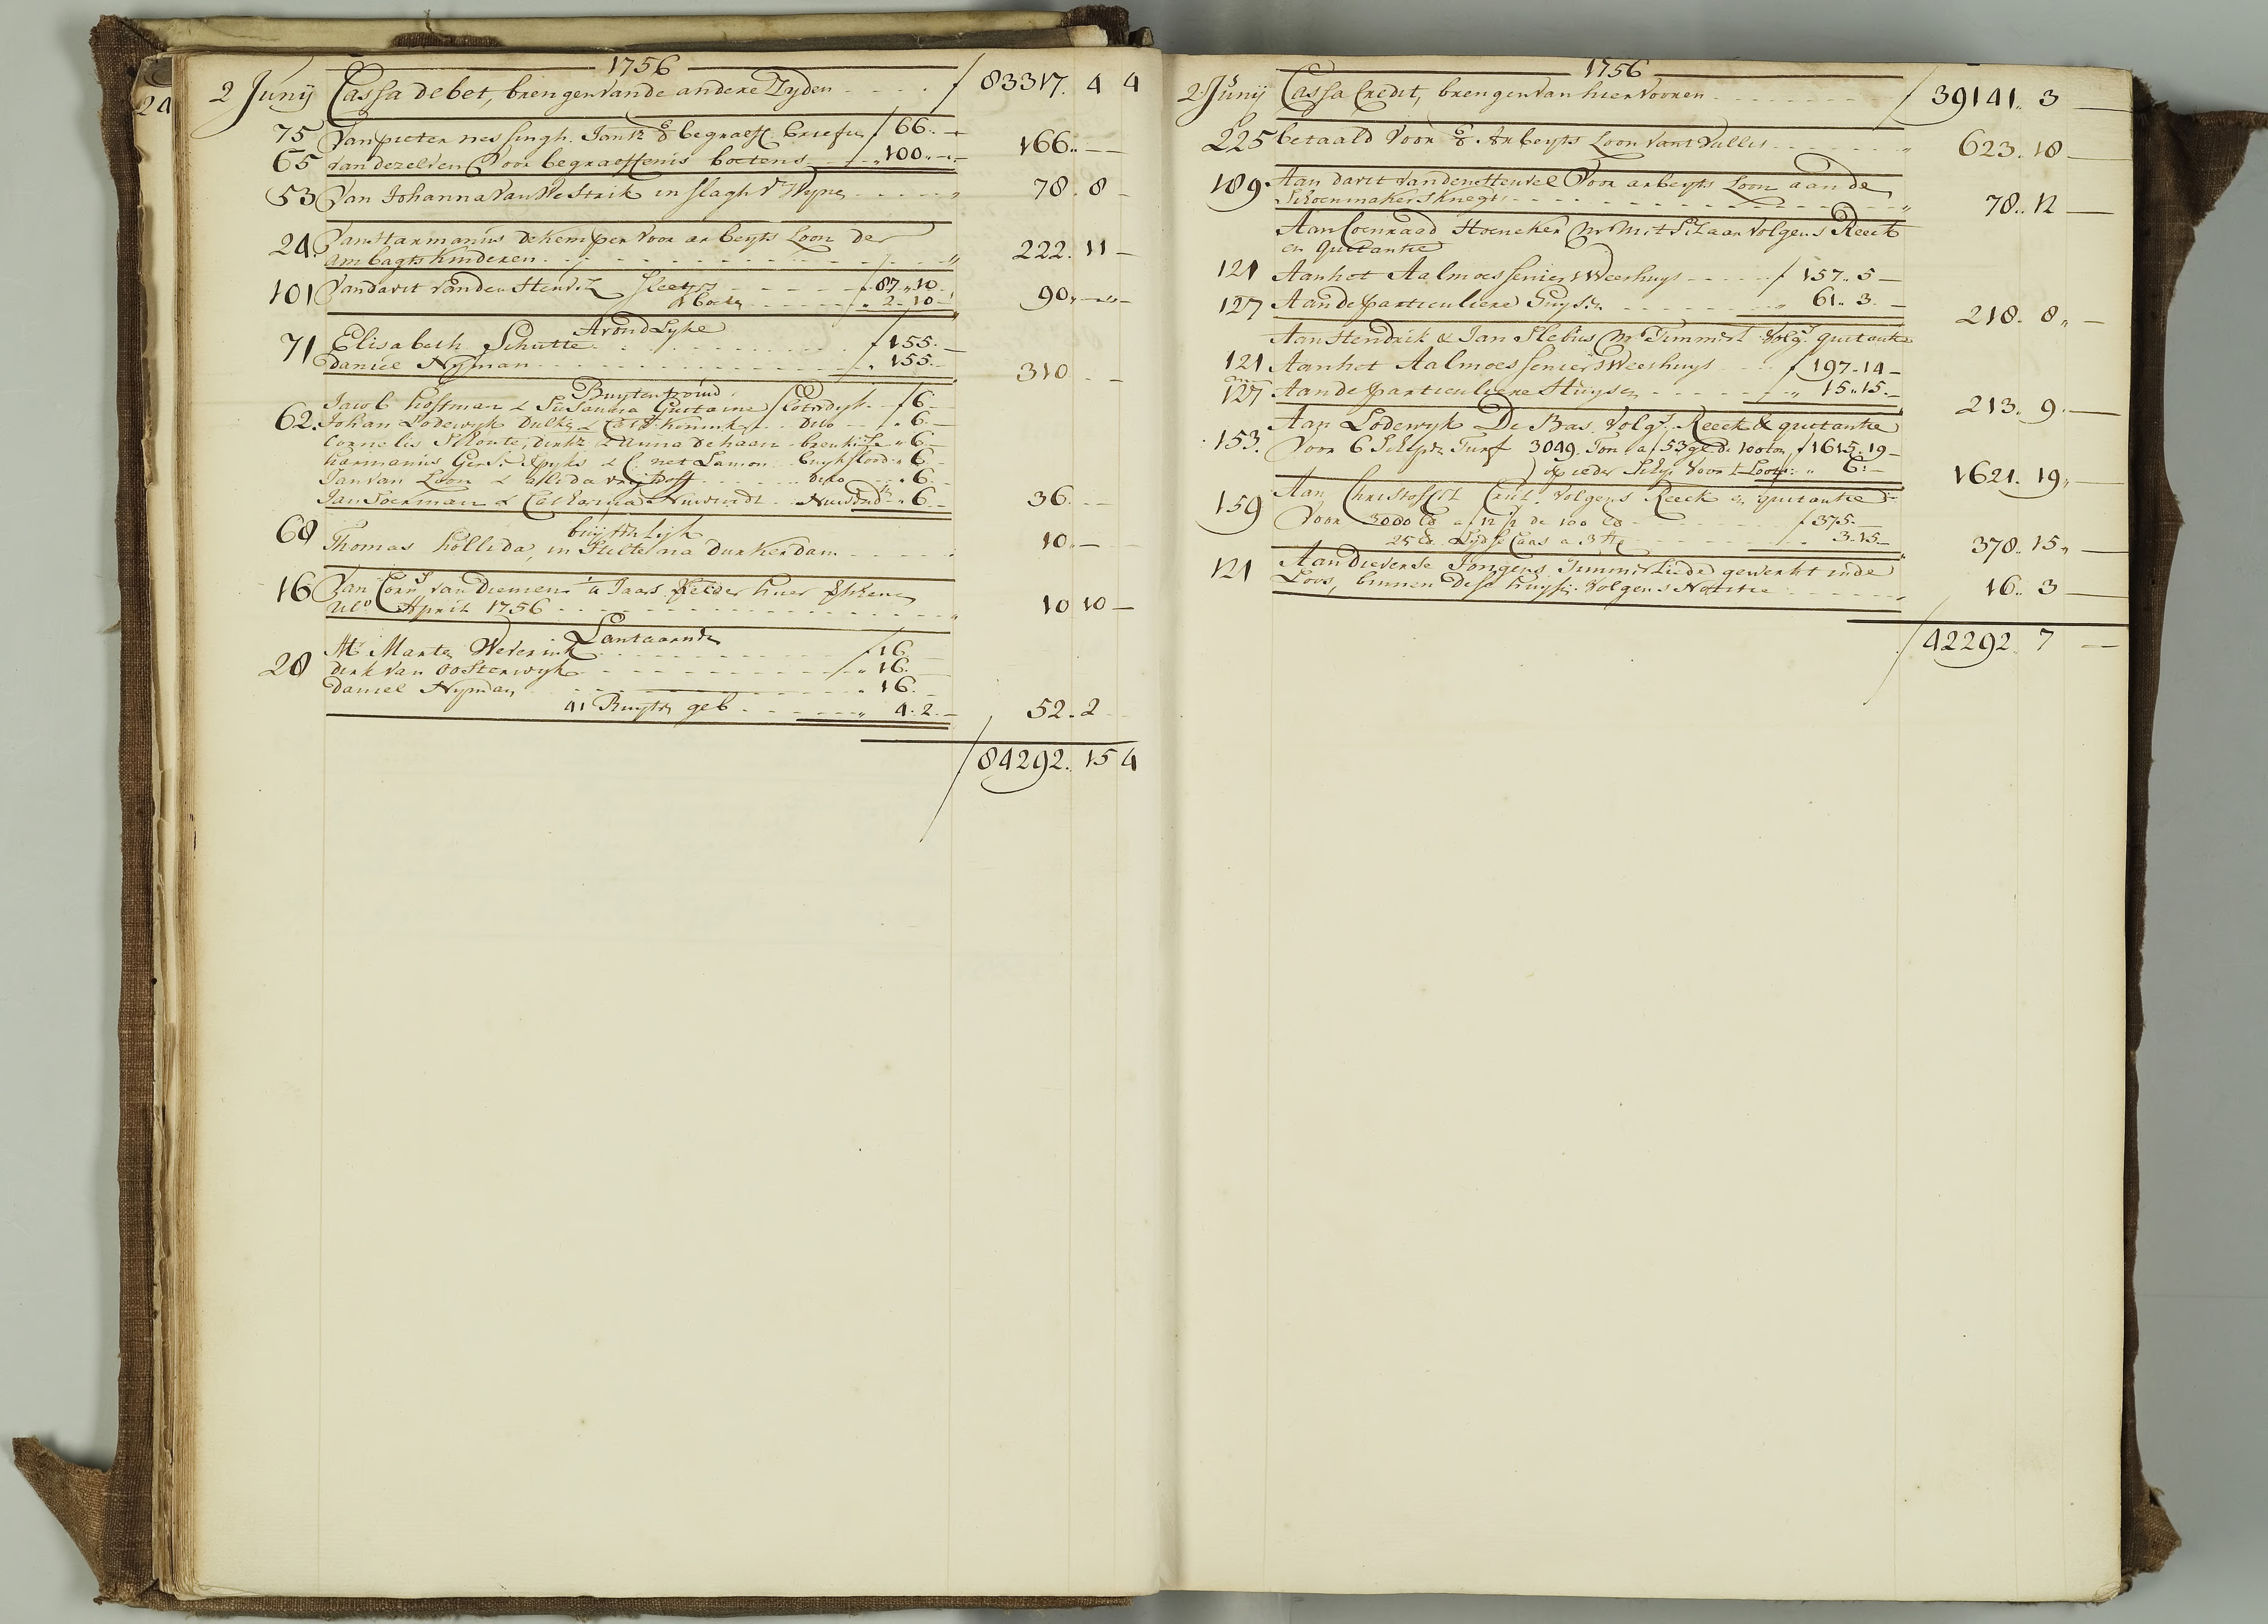 24
1756
2 Junij Cassa debet, brengen van de andere Zyden . . . . f 83317. 4 4
75 Van pieter nessingh. Jantz begraeff. briefies f 66. —
65 van dezelven Voor begraeffenis boetens — „ 100.. — 166.. — —
53 Van Johanna van Westrik in slagh Wyne 78. 8 —
24. Van Harmanus de Kemper voor arbeyts Loon der
ambagts kinderen . . . . 222. 11 —
101 Van davit van den Heuvel Sleetge f 87.. 10
„ 2 - 10 - 90.. — —
Avond Lyke
71 Elisabeth Schutte f 155. —
Daniel Nyman „ 155. — 310 . —
Buyten trouw
Jacob Hoffman & Susanna Gustavine Sloterdyk f 6
62. Johan Lodewyk & Konink dito „ 6. —
Cornelis Schoute, dirkz & Anna de haan breukele „ 6 —
Harmanus & C. net Lamon buykslood „ 6
Jan van Loon & Alida Vrythoff dito „ 6. —
Jan Boerman & Catharina Nuwendt Nuwend „ 6 — 36. . .
buyten Lyk
68 Thomas Hollida, in Stilte na durkerdam . . . . 10.. —
16 Van Corns van Diemen 'a Jaar Kelder huer
Ulto April 1756 10 10 —
Lantaarnde
Mt Marten Weverink f 16
28 dirk van Oosterwyk „ 16.
Daniel Nyman „ 16.
41 Buyten geb „ 4. 2. — 52. 2
f 84292. 15 4
1756
2 Junij Cassa Credit, brengen van hier vooren f 39141.. 3 —
225 betaald Voor Arbeyts Loon vant Vullis 623. 18 —
189. Aan davit van den Heuvel Voor arbeyts Loon aan de
Schoenmakers knegts 78.. 12 —
Aan Coenraad Hoeneker Mr Metselaar volgens Reeck
en quitantie
121 Aan het Aalmoesseniers Weeshuys f 157.. 5 —
127 Aan de particuliere Huysen „ 61.. 3. — 218. 8 „ —
Aan Hendrik & Jan Slebus Mr Timmerl Volgs quitantie
121 Aan het Aalmoesseniers Weeshuys f 197 - 14 —
127 Aan de particuliere Huysen „ 15.. 15. — 213. 9. —
Aan Lodewyk De Bas. Volgs Reeck & quitantie
153. Voor 6 Schepen Turf 3049. Ton a f 53 gl de 100 ton f 1615. 19 —
op ieder Schip voor t Loon „ 6: — 1621. 19 „ —
Aan Christoffel Crul. Volgens Reeck en quitantie
159 Voor 3000 lb a f 12 1/2 de 100 lb f 375. —
25 lb Lydse Caas a 3 st „ 3. 15. — 378.. 15 „ —
121 Aan dieverse Jongens Timmerliede gewerkt inde
Loos, binnen dese huyse. Volgens Notitie 16.. 3 —
f 42292. 7 —